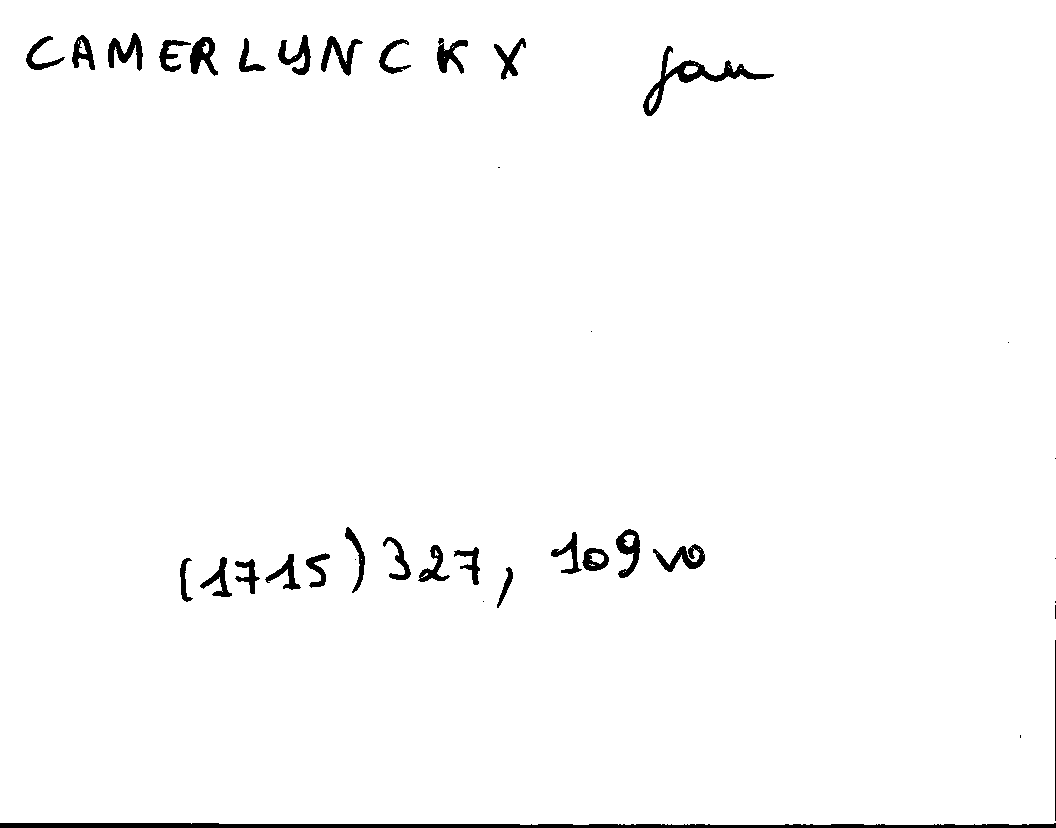 CAMERLYNCKX Jan
(1715) 327, 109vo